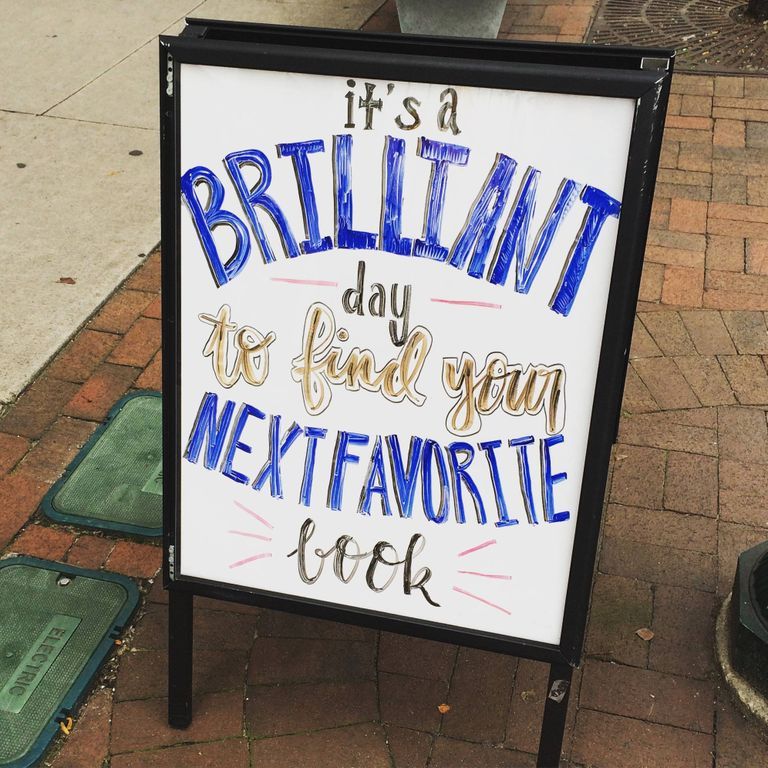 it's a
BRILLIANT
day
to find your
NEXT FAVORITE
book
ELECTRIC